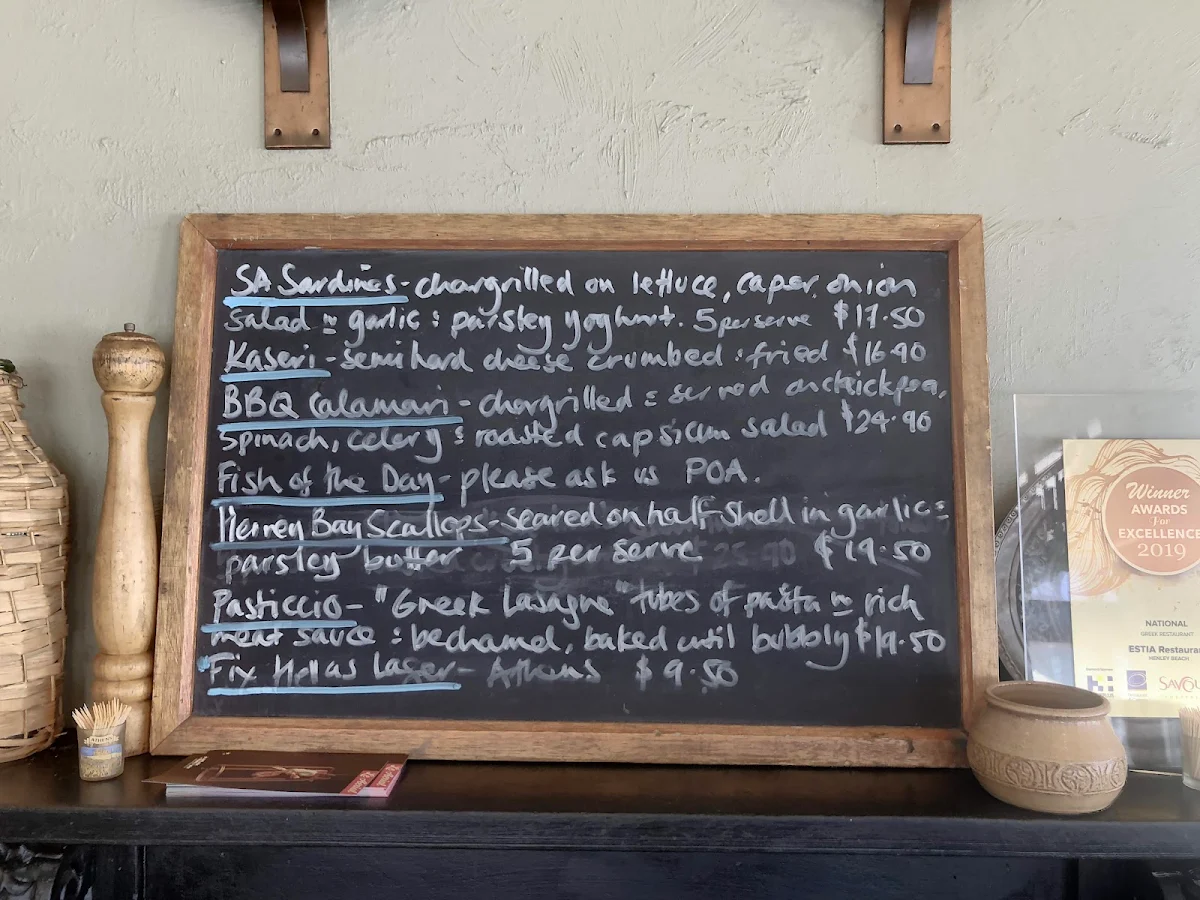 SA Sardines - chargrilled on lettuce, caper onion
salad w garlic & parsley yoghurt. 5 per serve $17.50
Kaseri - semi hard cheese crumbed & fried $16.90
BBQ Calamari - chargrilled & served on chickpea,
spinach, celery & roasted capsicum salad $24.90
Fish of the Day - please ask us POA.
Hervey Bay Scallops - seared on half shell in garlic &
parsley butter 5 per serve $19.50
Pasticcio - "Greek Lasagne" tubes of pasta w rich
meat sauce & bechamel, baked until bubbly $19.50
Fix Hellas Lager - Athens $9.50
Winner
AWARDS
For
EXCELLENCE
2019
NATIONAL
GREEK RESTAURANT
ESTIA Restaura
HENLEY BEACH